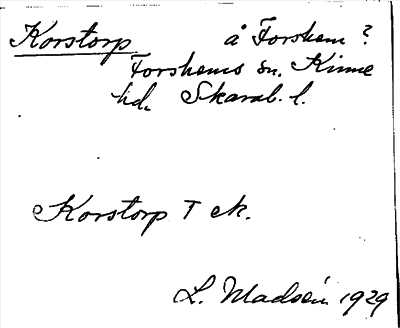 Korstorp å Forshem?
Forshems sn. Kinne
hd. Skarab. l.
Korstorp T ek.
L. Madsén 1929